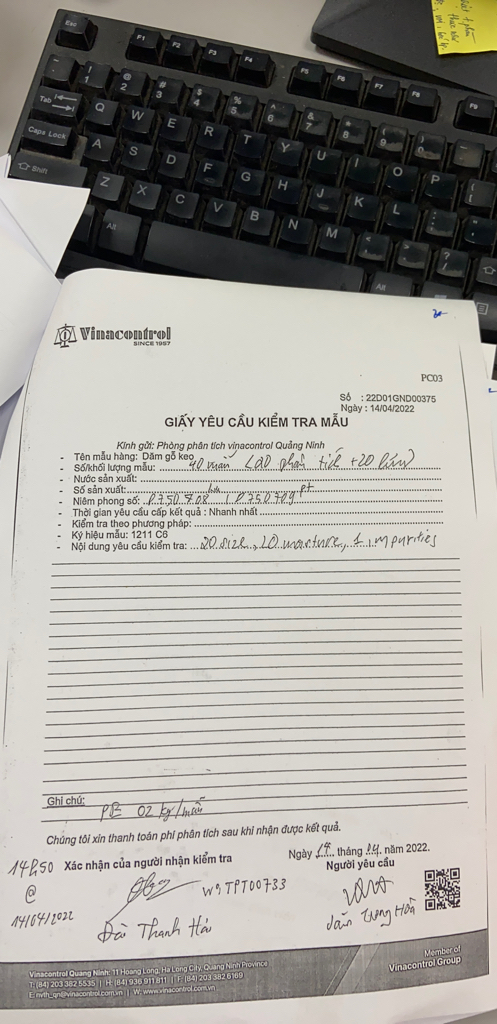 Vinacontrol
SINCE 1987
PC03
Số : 22D01GND00375
Ngày : 14/04/2022
GIẤY YÊU CẦU KIỂM TRA MẪU
Kính gửi: Phòng phân tích vinacontrol Quảng Ninh
- Tên mẫu hàng: Dăm gỗ keo
- Số/khối lượng mẫu: 40 mẫu (20 phân tích + 20 lưu)
- Nước sản xuất:
- Số sản xuất:
- Niêm phong số: P750708 / P750709
- Thời gian yêu cầu cấp kết quả : Nhanh nhất
- Kiểm tra theo phương pháp:
- Ký hiệu mẫu: 1211 C6
- Nội dung yêu cầu kiểm tra: 20 size, 20 moisture, 1 impurities
Ghi chú:
02 kg/mẫu
Chúng tôi xin thanh toán phí phân tích sau khi nhận được kết quả.
14h50 Xác nhận của người nhận kiểm tra
@
14/04/2022
W9TPT00733
Thanh Hải
Ngày 14 tháng 04 năm 2022.
Người yêu cầu
Vinacontrol Quảng Ninh: 11 Hoàng Long, Ha Long City, Quảng Ninh Province
T: (84) 203 382 5535 | H: (84) 936 911 811 | F: (84) 203 382 6169
E: nvth_qn@vinacontrol.com.vn | W: www.vinacontrol.com.vn
Member of
Vinacontrol Group